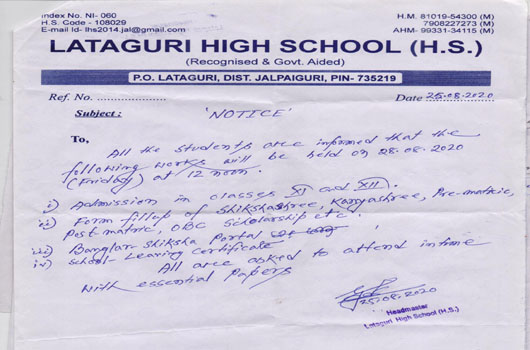 Index No- NI- 060
H.S. Code - 108029
E-mail Id- lhs2014.jal@gmail.com
H.M. 81019-54300 (M)
7908227273 (M)
AHM- 99331-34115 (M)
LATAGURI HIGH SCHOOL (H.S.)
(Recognised & Govt. Aided)
P.O. LATAGURI, DIST. JALPAIGURI, PIN- 735219
Ref. No. Date 25.08.2020
Subject : 'NOTICE'
To,
All the students are informed that the
following works will be held on 28.08.2020
(Friday) at 12 noon.
i) Admission in classes XI and XII.
ii) Form fillup of Shikshashree, Kanyashree, Pre-matric,
Post-matric, OBC Scholarship etc.
iii) Banglar Shiksha Portal
iv) School-Leaving Certificate
All are asked to attend intime
with essential Papers
25.08.2020
Headmaster
Lataguri High School (H.S.)